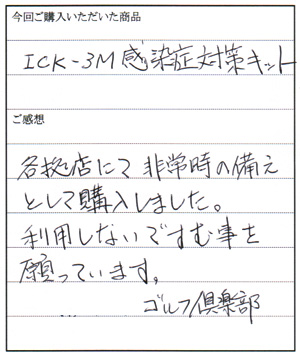 今回ご購入いただいた商品
ICK-3M 感染症対策キット
ご感想
各拠店にて非常時の備え
として購入しました。
利用しないですむ事を
願っています。
ゴルフ倶楽部